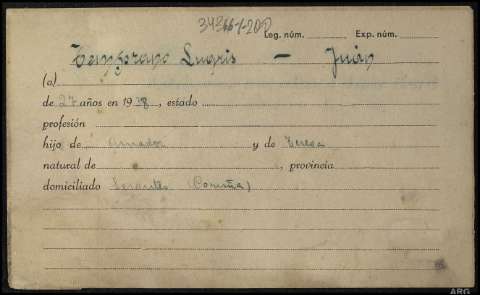 Leg. núm. Exp. núm.
Temprano Lugris — Juán
(a)
de 27 años en 1938, estado
profesión
hijo de Amador y de Teresa
natural de , provincia
domiciliado Serantes (Coruña)
ARG